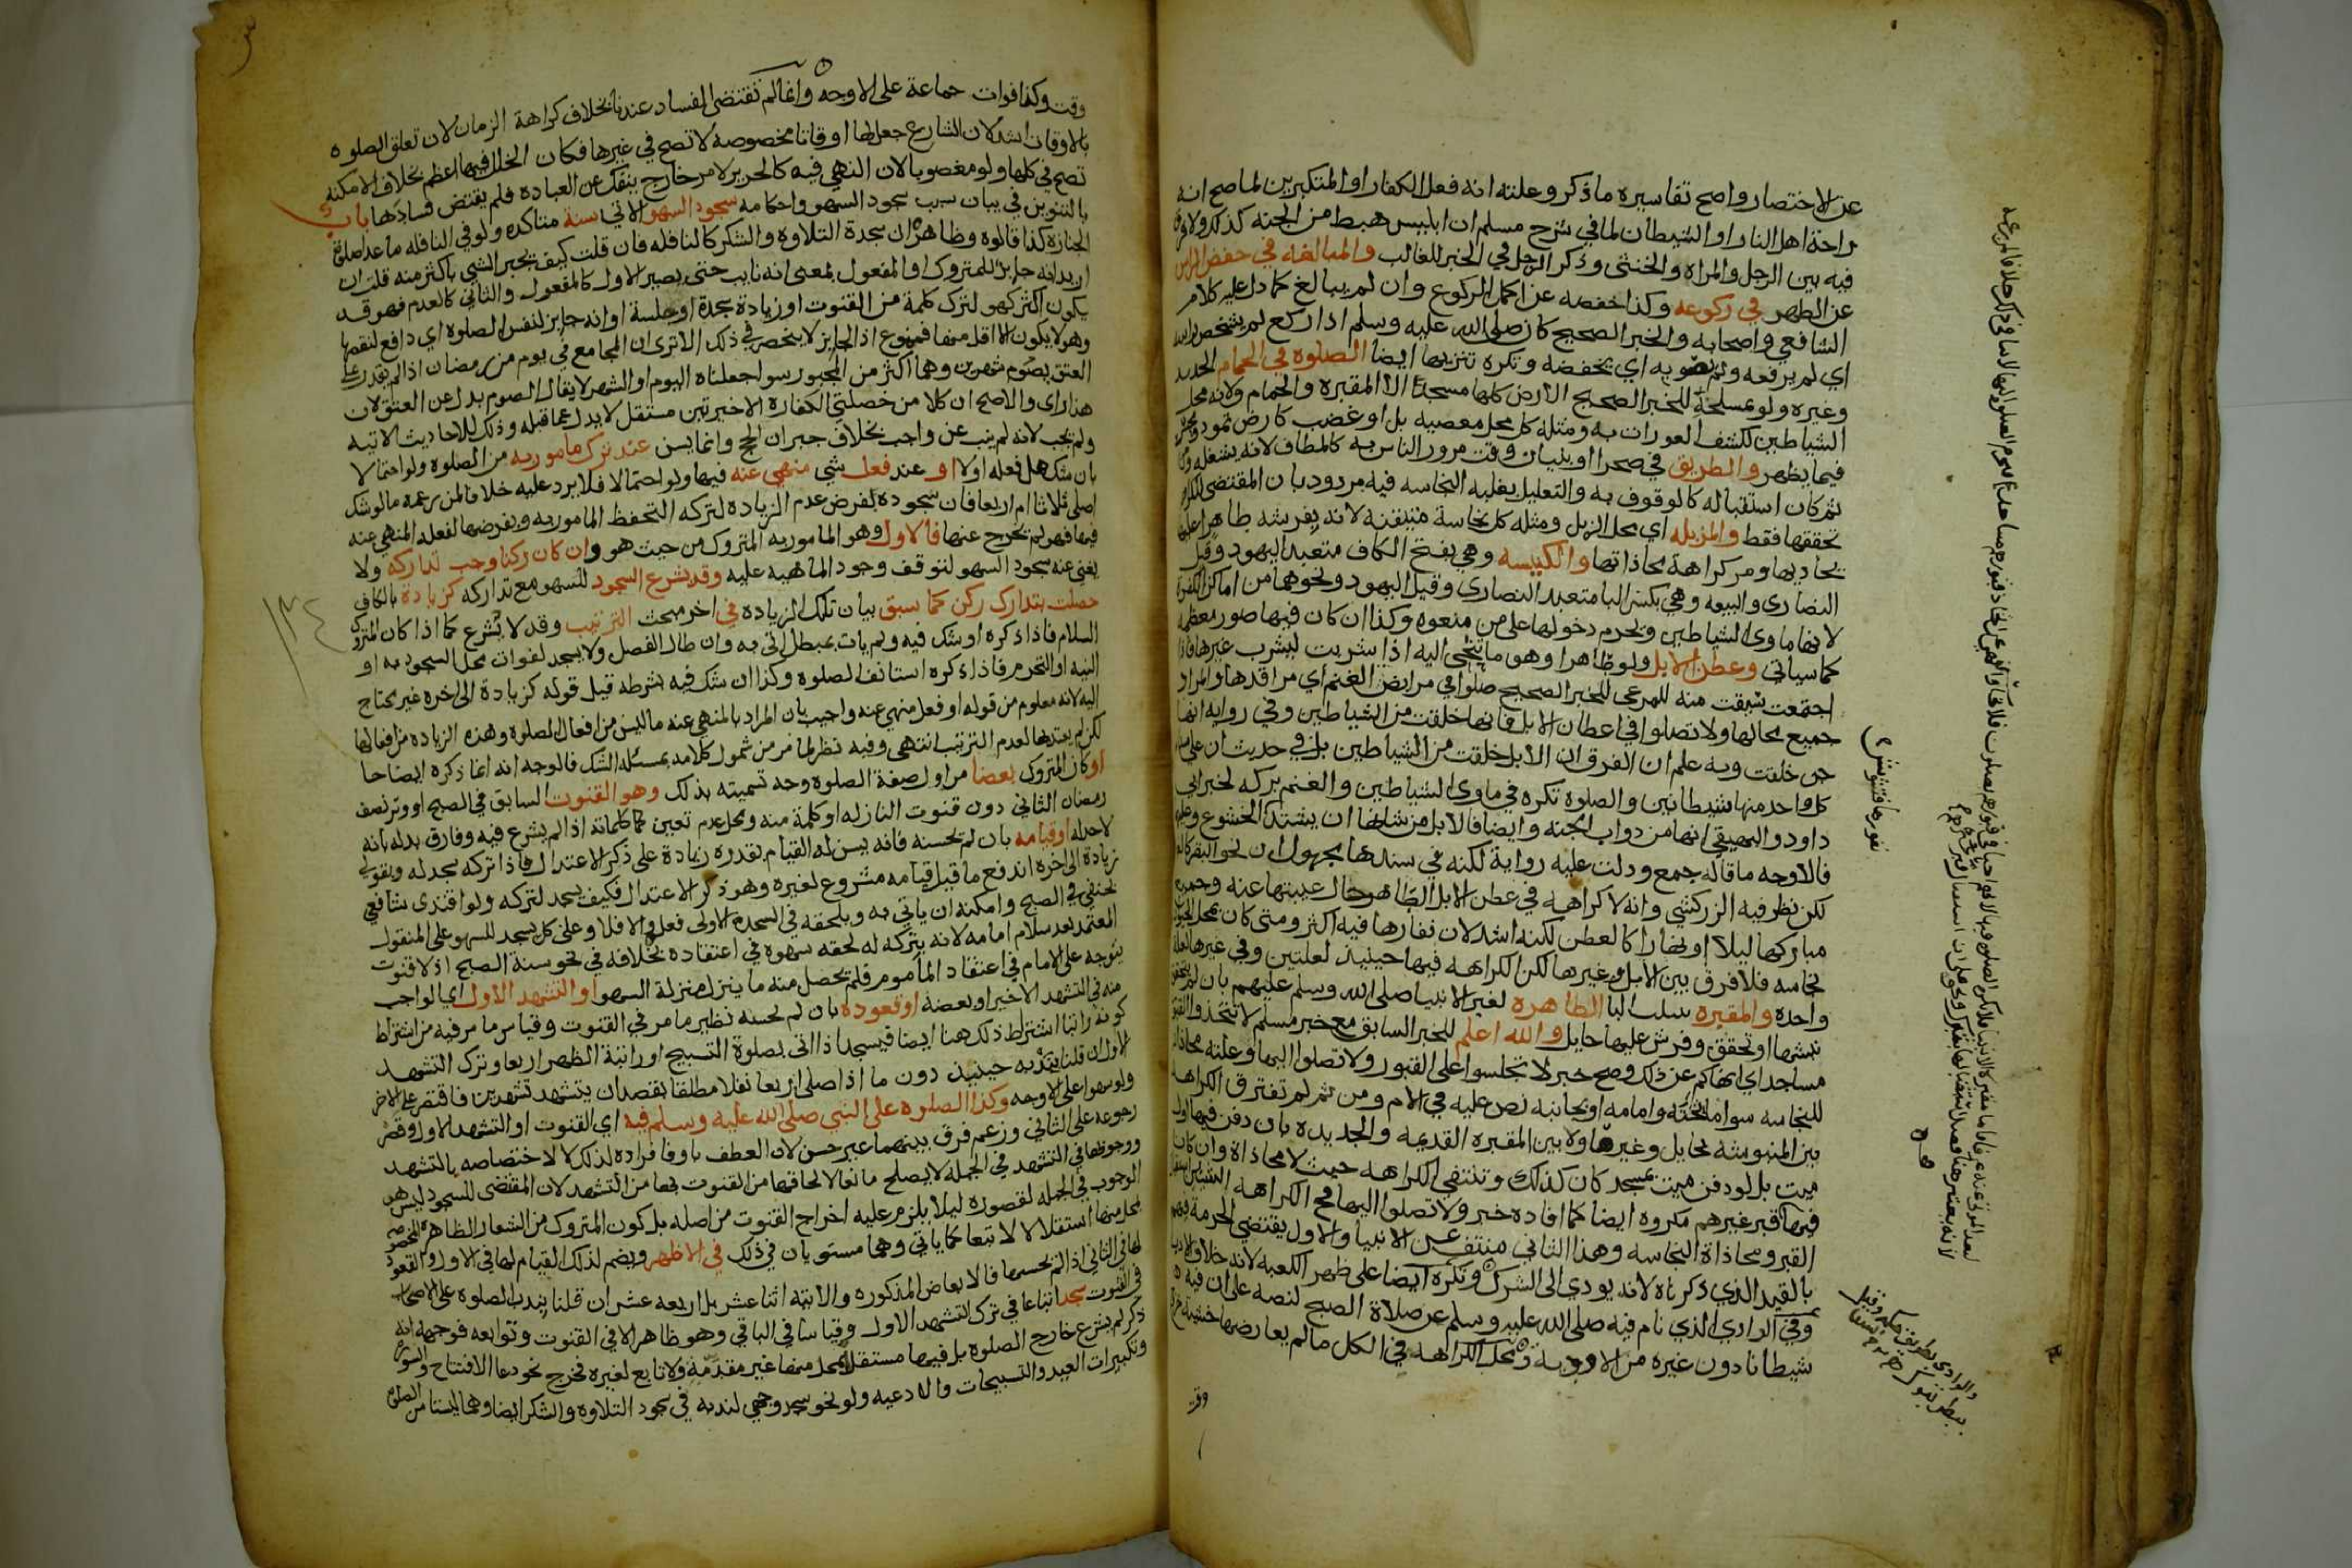 عن الاختصار واصح تفاسيره ما ذكر وعلته انه فعل الكفار او المتكبرين لما صح انه
راحة اهل النار او الشيطان لما في شرح مسلم ان ابليس هبط من الجنة كذلك ولا فرق
فيه بين الرجل والمراه والخنثى وذكر الرجل في الخبر للغالب والمبالغه في خفض الراس
عن الظهر في ركوعه وكذا خفضه عن اكمل الركوع وان لم يبالغ كما دل عليه كلام
الشافعي واصحابه والخبر الصحيح كان صلى الله عليه وسلم اذا ركع لم يشخص راسه
اي لم يرفعه ولم يصوبه اي يخفضه وتكره تنزيها ايضا الصلوة في الحمام الجديد
وغيره ولو بمسلخه للخبر الصحيح الارض كلها مسجد الا المقبره والحمام ولانه محل
الشياطين لكشف العورات به ومثله كل محل معصيه بل او غضب كارض ثمود ومحسر
فيما يظهر والطريق في صحرا او بنيان وقت مرور الناس به كالمطاف لانه يشغله ومن
ثم كان استقباله كالوقوف به والتعليل بغلبه النجاسه فيه مردود بان المقتضى للكراهه
تحققها فقط والمزبله اي محل الزبل ومثله كل نجاسة متيقنة لانه بفرشه طاهرا عليها
يحاذيها ومر كراهة محاذاتها والكنيسه وهي بفتح الكاف متعبد اليهود وقيل
النصارى والبيعه وهي بكسر البا متعبد النصارى وقيل اليهود ونحوهما من اماكن الكفر
لانها ماوى الشياطين ويحرم دخولها على من منعوه وكذا ان كان فيها صور معظمه
كما سياتي وعطن الابل ولو طاهرا وهو ما تنحى اليه اذا شربت ليشرب غيرها فاذا
اجتمعت سيقت منه للمرعى للخبر الصحيح صلوا في مرابض الغنم اي مراقدها والمراد
جميع محالها ولا تصلوا في اعطان الابل فانها خلقت من الشياطين وفي رواية انها
جن خلقت وبه علم ان الفرق ان الابل خلقت من الشياطين بل في حديث ان على سنام
كل واحد منها شيطانين والصلوة تكره في ماوى الشياطين والغنم بركه لخبر ابي
داود والبيهقي انها من دواب الجنه وايضا فالابل من شانها ان يشتد الخشوع وعليه
فالاوجه ما قاله جمع ودلت عليه رواية لكنه في سندها مجهول ان نحو البقر كالغنم
لكن نظر فيه الزركشي وانه لا كراهه في عطن الابل الطاهر حال غيبتها عنه وجميع
مباركها ليلا او نهارا كالعطن لكنه اشد لان نفارها فيه اكثر ومتى كان بمحل الحيوان
نجاسه فلا فرق بين الابل وغيرها لكن الكراهه فيها حينيذ لعلتين وفي غيرها لعله
واحده والمقبره بتثليث البا الطاهره لغير الانبيا صلى الله وسلم عليهم بان لم يتحقق
نبشها او تحقق وفرش عليها حايل والله اعلم للخبر السابق مع خبر مسلم لا تتخذوا القبور
مساجد اي انهاكم عن ذلك وصح خبر لا تجلسوا على القبور ولا تصلوا اليها وعلته محاذاته
للنجاسه سوا ما تحته او امامه او بجانبه نص عليه في الام ومن ثم لم تفترق الكراهه
بين المنبوشة بحايل وغيرها ولا بين المقبره القديمه والجديده بان دفن فيها اول
ميت بل لو دفن ميت بمسجد كان كذلك وتنتفي الكراهه حيث لا محاذاة وان كان
فيها قبر غيرهم مكروه ايضا كما افاده خبر ولا تصلوا اليها فمحل الكراهه
القبر ومحاذاة النجاسه وهذا الثاني منتف عن الانبيا والاول يقتضي الحرمة فيهم
بالقيد الذي ذكرناه لانه يودي الى الشرك وتكره ايضا على ظهر الكعبه لانه خلاف الادب
وفي الوادي الذي نام فيه صلى الله عليه وسلم عن صلاة الصبح لنصه على ان فيه
شيطانا دون غيره من الاودية ومحل الكراهه في الكل ما لم يعارضها خشية خروج
وقت
نفورها فتشوش
وقت وكذا فوات جماعة على الاوجه وانما لم تقتضى الفساد عندنا بخلاف كراهة الزمان لان تعلق الصلوه
بالاوقات اشد لان الشارع جعل لها اوقاتا مخصوصه لا تصح في غيرها فكان الخلل فيها اعظم بخلاف الامكنه
تصح في كلها ولو مغصوبا لان النهي فيه كالحرير لامر خارج ينفك عن العباده فلم يقتض فسادها باب
بالتنوين في بيان سبب سجود السهو واحكامه سجود السهو الاتي سنة متاكده ولو في النافله ما عدا صلاة
الجنازه كذا قالوه وظاهره ان سجدة التلاوه والشكر كالنافله فان قلت كيف يجبر الشي باكثر منه قلت ان
اريد انه جابر للمتروك او المفعول بمعنى انه نايب حتى يصير الاول كالمفعول والثاني كالعدم فهو قد
يكون اكثر كهو لترك كلمة من القنوت او زيادة سجدة او جلسة او انه جابر لنفس الصلوه اي دافع لنقصها
وهو لا يكون الا اقل منها فممنوع اذ الجابر لا ينحصر في ذلك الا ترى ان المجامع في يوم من رمضان اذا لم يقدر على
العتق يصوم شهرين وهما اكثر من المجبور سوا جعلناه اليوم او الشهر لا يقال الصوم بدل عن العتق لان
هذا راى والاصح ان كلا من خصلتي الكفارة الاخيرتين مستقل لا بدل عما قبله وذلك للاحاديث الاتيه
ولم يجب لانه لم ينب عن واجب بخلاف جبران الحج وانما يسن عند ترك مامور به من الصلوه ولو احتمالا
بان شك هل فعله او لا او عند فعل شي منهي عنه فيها ولو احتمالا فلا يرد عليه خلافا لمن زعمه ما لو شك
اصلى ثلاثا ام اربعا فان سجوده بفرض عدم الزياده لتركه التحفظ المامور به وبفرضها لفعله المنهى عنه
فيها فهو لم يخرج عنها فالاول وهو المامور به المتروك من حيث هو وان كان ركنا وجب تداركه ولا
يغني عنه سجود السهو لتوقف وجود الماهيه عليه وقد يشرع السجود للسهو مع تداركه كزيادة بالكاف
حصلت بتدارك ركن كما سبق بيان تلك الزياده في اخر مبحث الترتيب وقد لا يشرع كما اذا كان المتروك
السلام فاذا ذكره او شك فيه ولم يات بمبطل اتى به وان طال الفصل ولا يسجد لفوات محل السجود به او
النيه او التحرم فاذا ذكره استانف الصلوه وكذا ان شك فيه بشرطه قيل قوله كزيادة الى اخره غير محتاج
اليه لانه معلوم من قوله او فعل منهي عنه واجيب بان المراد بالمنهي عنه ما ليس من افعال الصلوه وهذه الزياده من افعالها
لكن لم يعتد بها لعدم الترتيب انتهى وفيه نظر لما مر من شمول كلامه بمسئله الشك فالوجه انه انما ذكره ايضاحا
او كان المتروك بعضا مر اول صفة الصلوه وجه تسميته بذلك وهو القنوت السابق في الصبح او وتر نصف
رمضان الثاني دون قنوت النازله او كلمة منه ومحل عدم تعين كلماته اذا لم يشرع فيه وفارق بدله بانه
لاحد له او قيامه بان لم يحسنه فانه يسن له القيام بقدره زيادة على ذكر الاعتدال فاذا تركه سجد له وبقولي
زيادة الى اخره اندفع ما قيل قيامه مشروع لغيره وهو ذكر الاعتدال فكيف يسجد لتركه ولو اقتدى شافعي
بحنفي في الصبح وامكنه ان ياتي به ويلحقه في السجدة الاولى فعله والا فلا وعلى كل يسجد للسهو على المنقول
المعتمد بعد سلام امامه لانه بتركه له لحقه سهوه في اعتقاده بخلافه في نحو سنة الصبح اذ لا قنوت
يتوجه على الامام في اعتقاد الماموم فلم يحصل منه ما ينزل منزلة السهو او التشهد الاول اي الواجب
منه في التشهد الاخير او بعضه او قعوده بان لم يحسنه نظير ما مر في القنوت وقياس ما مر فيه من اشتراط
كونه راتبا اشتراط ذلك هنا ايضا فيسجد اذا اتى بصلوة التسبيح او راتبة الظهر اربعا وترك التشهد
الاول ان قلنا بندبه حينيذ دون ما اذا صلى اربعا نفلا مطلقا بقصد ان يتشهد تشهدين فاقتصر على الاخر
ولو سهوا على الاوجه وكذا الصلوه على النبي صلى الله عليه وسلم فيه اي القنوت او التشهد الاول وقصر
رجوعه على الثاني وزعم فرق بينهما غير حسن لان العطف باو فافراده لذلك لا لاختصاصه بالتشهد
ووجوبها في التشهد في الجمله لا يصلح مانعا لالحاقها من القنوت بها من التشهد لان المقتضى للسجود ليس هو
الوجوب في الجمله لقصوره ليلا يلزم عليه اخراج القنوت من اصله بل كون المتروك من الشعار الظاهره المخصوصه
بمحل منها استقلالا لا تبعا كما ياتي وهما مستويان في ذلك في الاظهر ويضم لذلك القيام لها في الاول والقعود
لها في الثاني اذا لم يحسنها فالابعاض المذكوره والاتيه اثنا عشر بل اربعه عشر ان قلنا بندب الصلوه على الاصحاب
في القنوت سجد اتباعا في ترك التشهد الاول وقياسا في الباقي وهو ظاهر الا في القنوت وتوابعه فوجهه انه
ذكر لم يشرع خارج الصلوه بل فيها مستقلا بمحل منها غير مقدمة ولا تابع لغيره فخرج نحو دعا الافتتاح والسورة
وتكبيرات العيد والتسبيحات والادعيه ولو نحو سجد وجهي لندبه في سجود التلاوه والشكر ايضا وهما ليستا من الصلوه
١٣٤